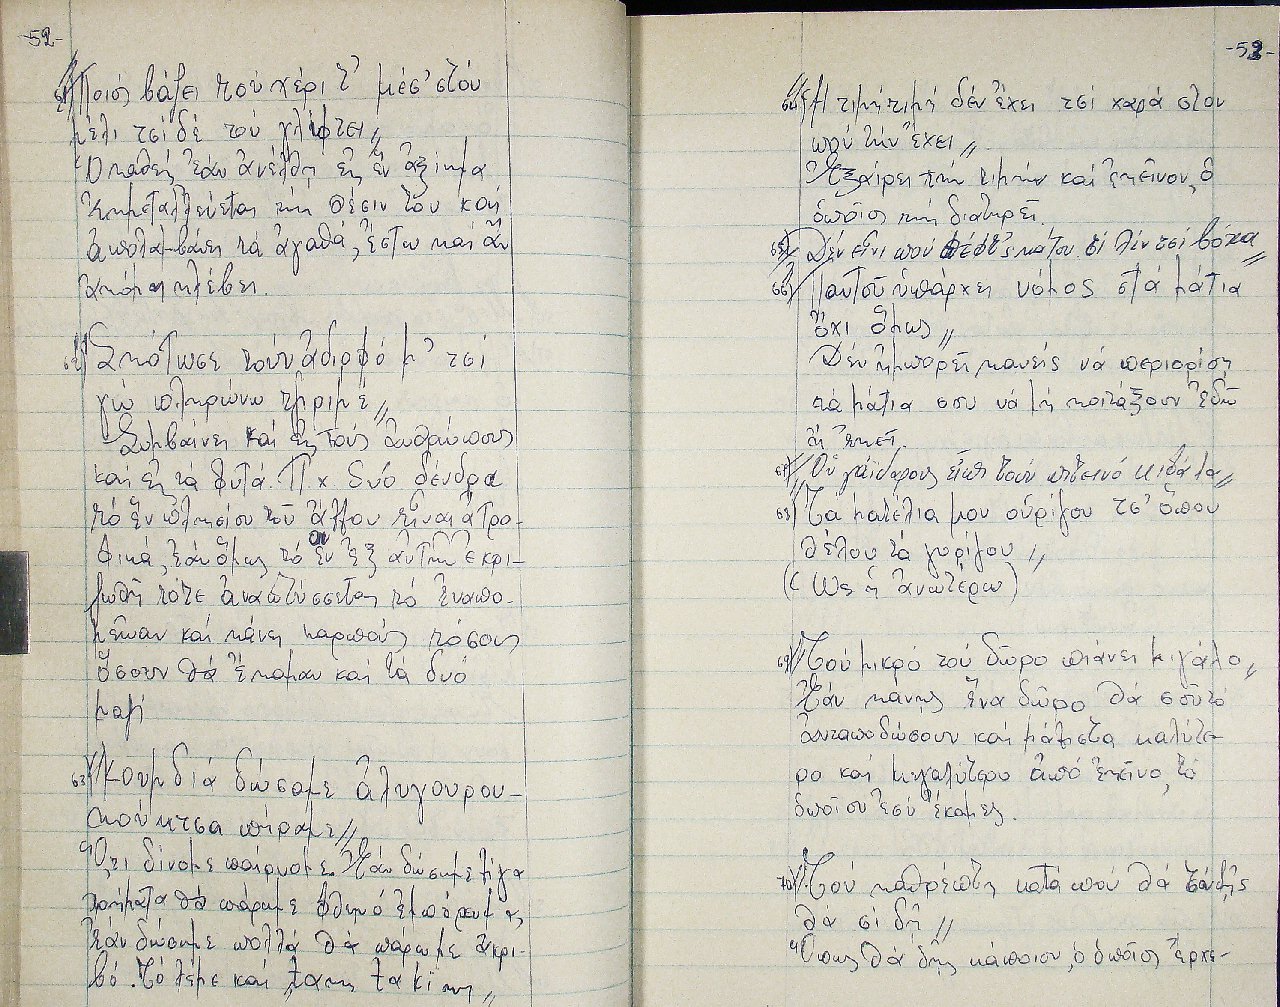 -52-
61) "Ποιός βάζει τού χέρι τ' μέσ' στού
μέλι τσί δέ τού γλύφτει,,
Ὁ καθείς ἐάν ἀνέλθῃ εἰς ἕν ἀξίωμα
ἐκμεταλλεύεται τήν θέσιν του καί
ἀπολαμβάνει τά ἀγαθά, ἔστω καί ἄν
ἀκόμη κλέβει.
62) "Σκότωσε τούν ἀδιρφό μ' τσί
γώ πληρώνω
Συμβαίνει καί εἰς τούς ἀνθρώπους
καί εἰς τά φυτά. Π.χ δυό δένδρα
τό ἕν πλησίον τοῦ ἄλλου εἶναι ἀτρο-
φικά, ἐάν ὅμως τό ἕν ἐξ αὐτῶν ἐκρι-
ζωθῆ τότε ἀναπτύσσεται τό ἐναπο-
μεῖναν καί κάνει καρπούς τόσους
ὅσουν θά ἔκαμαν καί τά δυό
μαζί
63) "Κουμδιά δώσαμε ἀλυγουρου-
κούκτσα πήραμε,,
Ὅτι δίνομε παίρνομε. Ἐάν δώσωμε λίγα
χρήματα θά πάρωμε φθηνό ἐμπόρευμα,
ἐάν δώσωμε πολλά θά πάρωμε ἀκρι-
βό. Τό λέμε καί
-53-
64) "Ἡ τιμή τιμή δέν ἔχει τσί χαρά στον
πού τήν ἔχει,,
Ἐξαίρει τήν τιμήν καί ἐκεῖνον, ὁ
ὁποῖος τήν διατηρεῖ.
65) "Δέν εἶνι πού πέφτς κάτου σί λέν τσί βόχα,,
66) "Παντοῦ ὑπάρχει νόμος στά μάτια
ὄχι ὅμως,,
Δέν ἠμπορεῖ κανείς νά περιορίσῃ
τά μάτια σου νά μή κοιτάξουν ἐδῶ
ἤ ἐκεῖ.
67) "Οὑ γάιδαρους εἶπι τούν πιτεινό κιφάλα,,
68) "Τά κατέλια μου οὑρίζου τσ' ὅπου
θέλου τά γυρίζου,,
(Ὡς ἡ ἀνωτέρω)
69) "Τού μικρό τού δῶρο πιάνει μιγάλο,,
Ἐάν κάνῃς ἕνα δῶρο θά σοῦ τό
ἀνταποδώσουν καί μάλιστα καλύτε-
ρο καί μεγαλύτερο ἀπό ἐκεῖνο, τό
ὁποῖον ἐσύ ἔκαμες.
70) "Τού καθρέπτη κατά πού θά
θά σί δῆ,,
Ὅπως θά δῆς κάποιον, ὁ ὁποῖος ἔρχε-